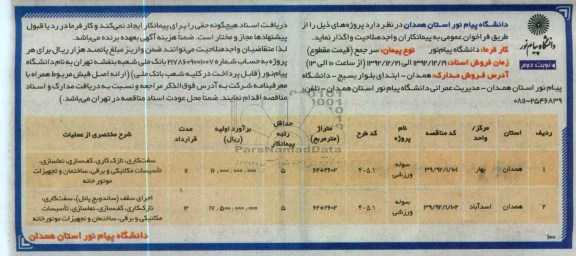 دانشگاه پیام نور استان همدان در نظر دارد پروژه‌های ذیل را از
طریق فراخوان عمومی به پیمانکاران واجدصلاحیت واگذار نماید.
کار فرما: دانشگاه پیام‌نور نوع پیمان: سر جمع (قیمت مقطوع)
زمان فروش اسناد: ۱۳۹۲/۱۲/۱۹ الی ۱۳۹۲/۱۲/۲۱ (از ساعت ۱۰ الی ۱۳)
آدرس فروش مدارک: همدان - ابتدای بلوار بسیج - دانشگاه
پیام نور استان همدان - مدیریت عمرانی دانشگاه پیام نور استان همدان - تلفن:
۰۸۱۱-۲۵۴۶۸۳۹
دانشگاه پیام نور
نوبت دوم
دریافت اسناد هیچگونه حقی را برای پیمانکار ایجاد نمی‌کند و کارفرما در رد یا قبول
پیشنهادها مجاز و مختار است. ضمنا هزینه آگهی بعهده برنده می‌باشد.
لذا متقاضیان واجدصلاحیت می‌توانند ضمن واریز مبلغ پانصد هزار ریال برای هر
پروژه به حساب شماره بانک ملی شعبه بنفشه تهران به نام دانشگاه
پیام‌نور (قابل پرداخت در کلیه شعب بانک ملی) (ارائه اصل فیش مربوط همراه با
معرفینامه شرکت) به آدرس فوق الذکر مراجعه و نسبت به دریافت مدارک و اسناد
مناقصه اقدام نمایند. ضمنا محل عودت اسناد مناقصه در تهران می‌باشد.
ردیف استان مرکز/واحد کد مناقصه نام پروژه کد طرح متراژ (مترمربع) حداقل رتبه پیمانکار برآورد اولیه (ریال) مدت قرارداد شرح مختصری از عملیات
۱ همدان بهار ۳۹/۹۲/۱/۱۰۱ سوله ورزشی ۴۰۵۰۱ ۵ ۱۶,۰۰۰,۰۰۰,۰۰۰ سفت‌کاری، نازک کاری، کف‌سازی، نماسازی، تأسیسات مکانیکی و برقی، ساختمان و تجهیزات موتورخانه
۲ همدان اسدآباد ۳۹/۹۲/۱/۱۰۲ سوله ورزشی ۴۰۵۰۱ ۵ ۱۷,۵۰۰,۰۰۰,۰۰۰ ۱۲ اجرای سقف (ساندویچ پانل)، سفت‌کاری، نازک‌کاری، کف‌سازی، نماسازی، تأسیسات مکانیکی و برقی، ساختمان و تجهیزات موتورخانه
دانشگاه پیام نور استان همدان
ParsNamadData